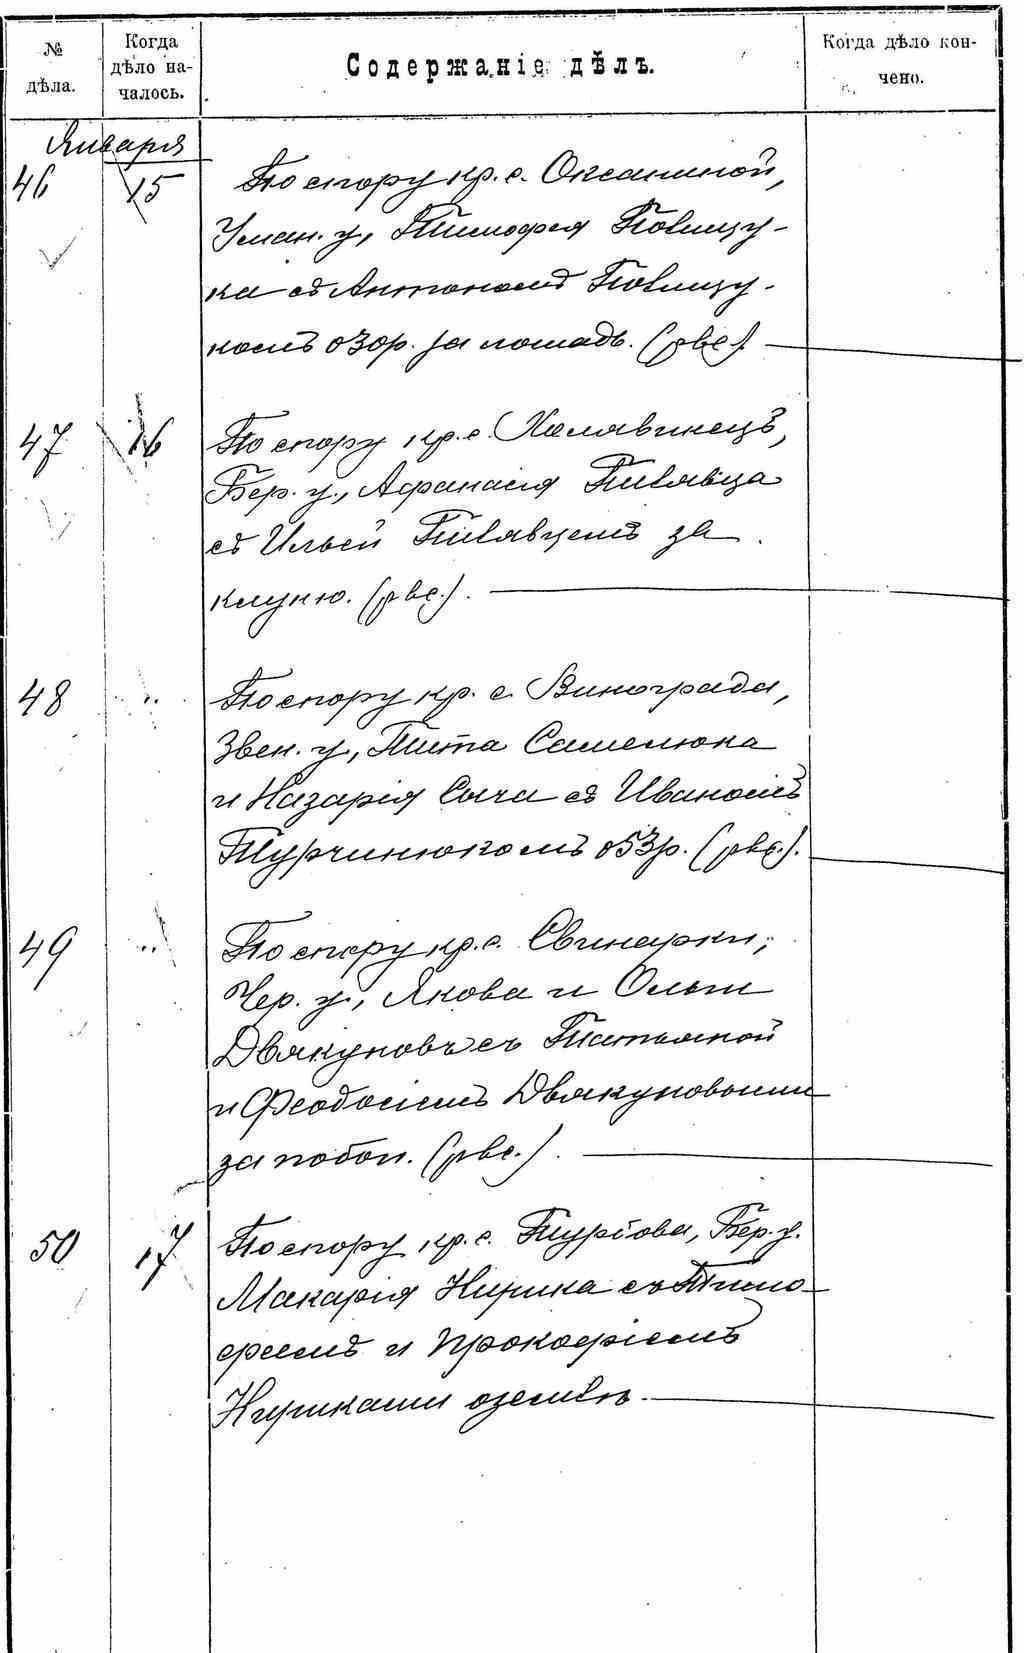 № дѣла.
Когда дѣло на-
чалось.
Содержаніе дѣлъ.
Когда дѣло кон-
чено.
Января
46 15 По спору кр. с. Оксаниной,
Уман. у., Тимофея
ка съ Антономъ
комъ о 30 р. за лошадь. (рвс.).
47 16 По спору кр. с. Халявинецъ,
Бер. у., Афанасія Пивавца
съ Ильей Пивавцемъ за
клуню. (рвс.).
48 " По спору кр. с. Винограда,
Звен. у., Тита Самелюка
и Назарія Сыча съ Иваномъ
Турчинюкомъ о 53 р. (рвс.).
49 " По спору кр. с. Свинарки,
Чер. у., Якова и Ольги
Двякуновъ съ Татьяной
и Феодосіемъ Двякуновыми
за побои. (рвс.).
50 17 По спору кр. с. Бер. у.
Макарія съ Тимо-
феемъ и Прокофіемъ
о землѣ.